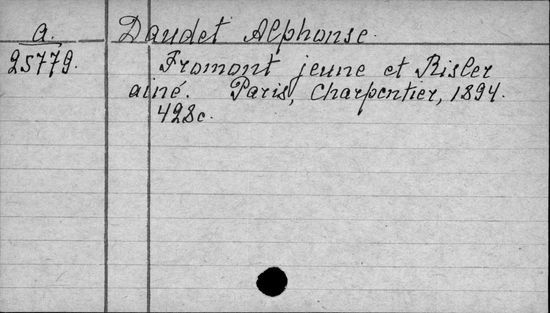 a. Daudet Alphonse.
25779. Fromont jeune et Risler
ainé. Paris, Charpentier, 1894.
428c.